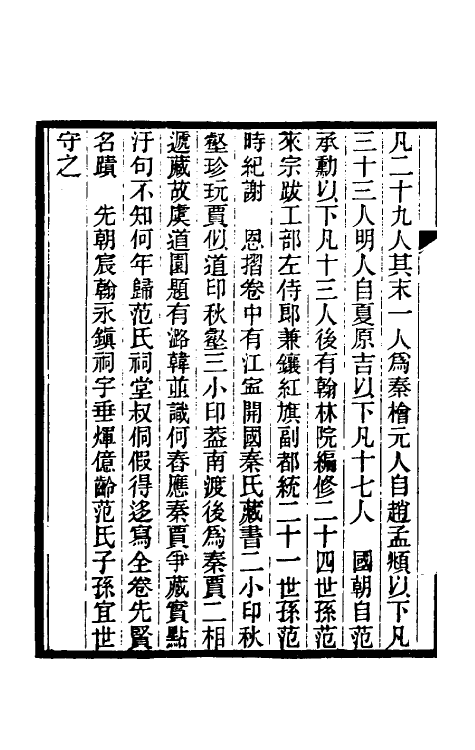 凡二十九人其末一人爲秦檜元人自趙孟頫以下凡
三十三人明人自夏原吉以下凡十七人　國朝自范
承勳以下凡十三人後有翰林院編修二十四世孫范
來宗跋工部左侍郎兼鑲紅旗副都統二十一世孫范
時紀謝　恩摺卷中有江寍開國秦氏藏書二小印秋
壑珍玩賈似道印秋壑三小印葢南渡後爲秦賈二相
遞藏故虞道園題有潞韓並識何舂應秦賈爭藏實點
汙句不知何年歸范氏祠堂叔侗假得迻寫全卷先賢
名蹟　先朝宸翰永鎭祠宇垂煇億齡范氏子孫宜世
守之